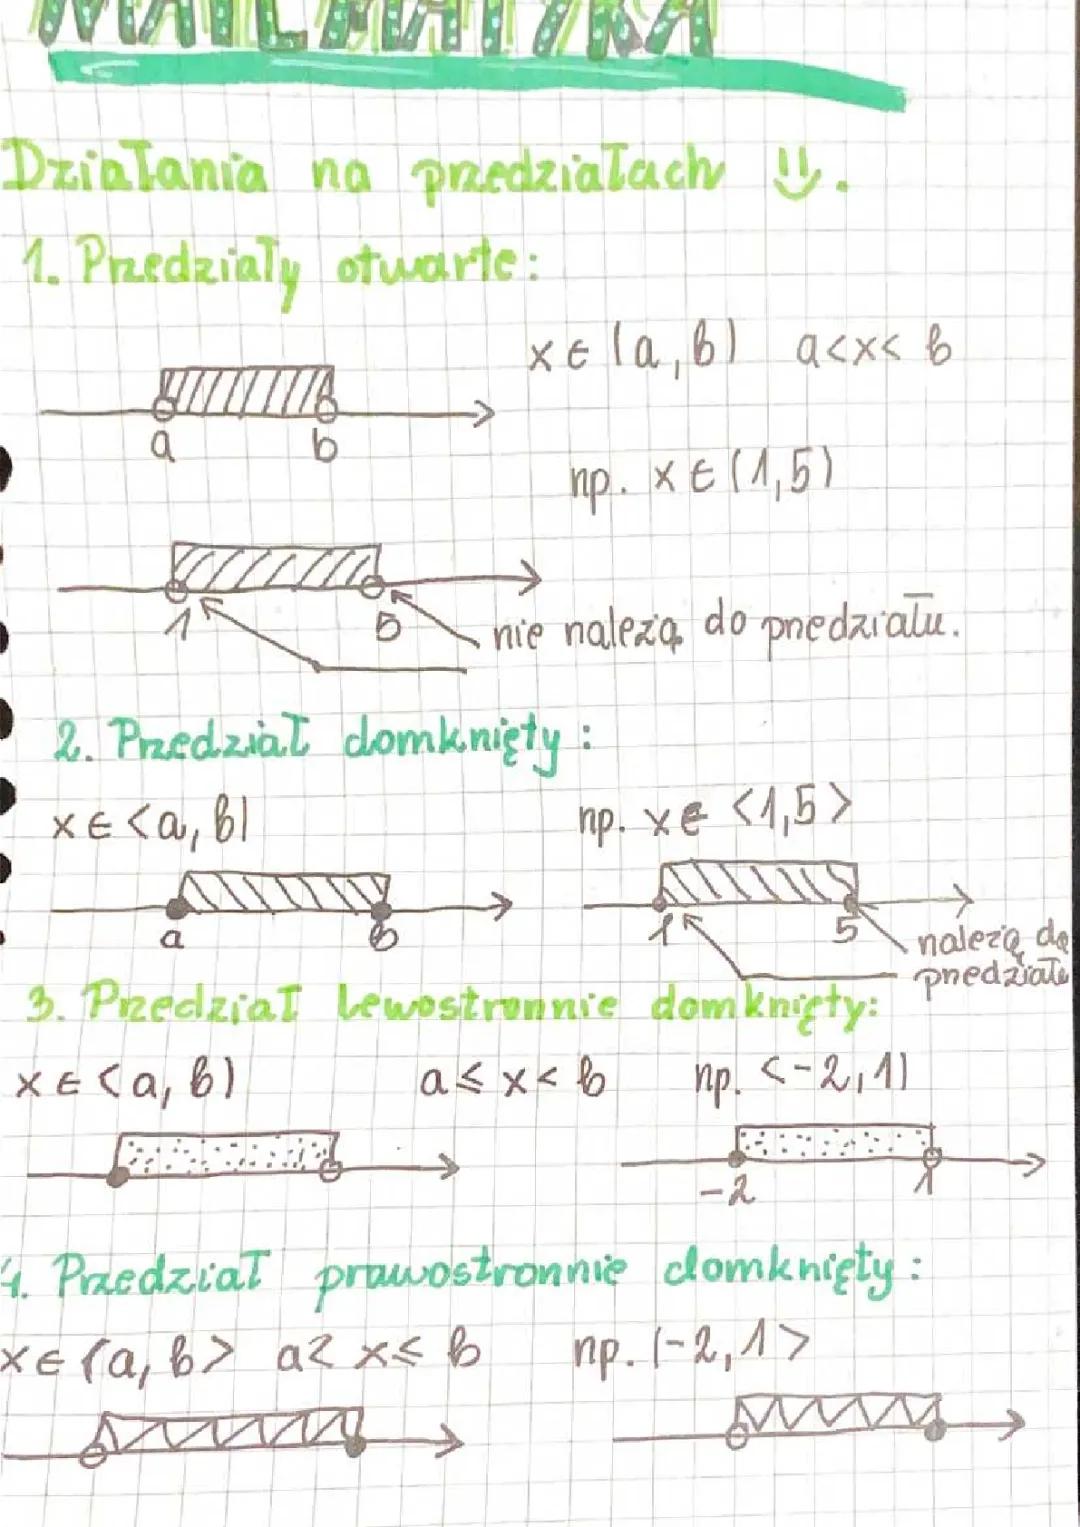 MATEMATYKA
Działania na przedziałach
1. Przedziały otwarte:
x ∈ (a, b) a<x< b
a b
np. x ∈ (1,5)
1 5
nie należą do przedziału.
2. Przedział domknięty:
x ∈ <a, b) np. x ∈ <1,5>
a b 1 5
należą do
przedziału
3. Przedział lewostronnie domknięty:
x ∈ <a, b) a ≤ x < b np. <-2,1)
-2 1
4. Przedział prawostronnie domknięty:
x ∈ (a, b> a< x ≤ b np. (-2, 1>